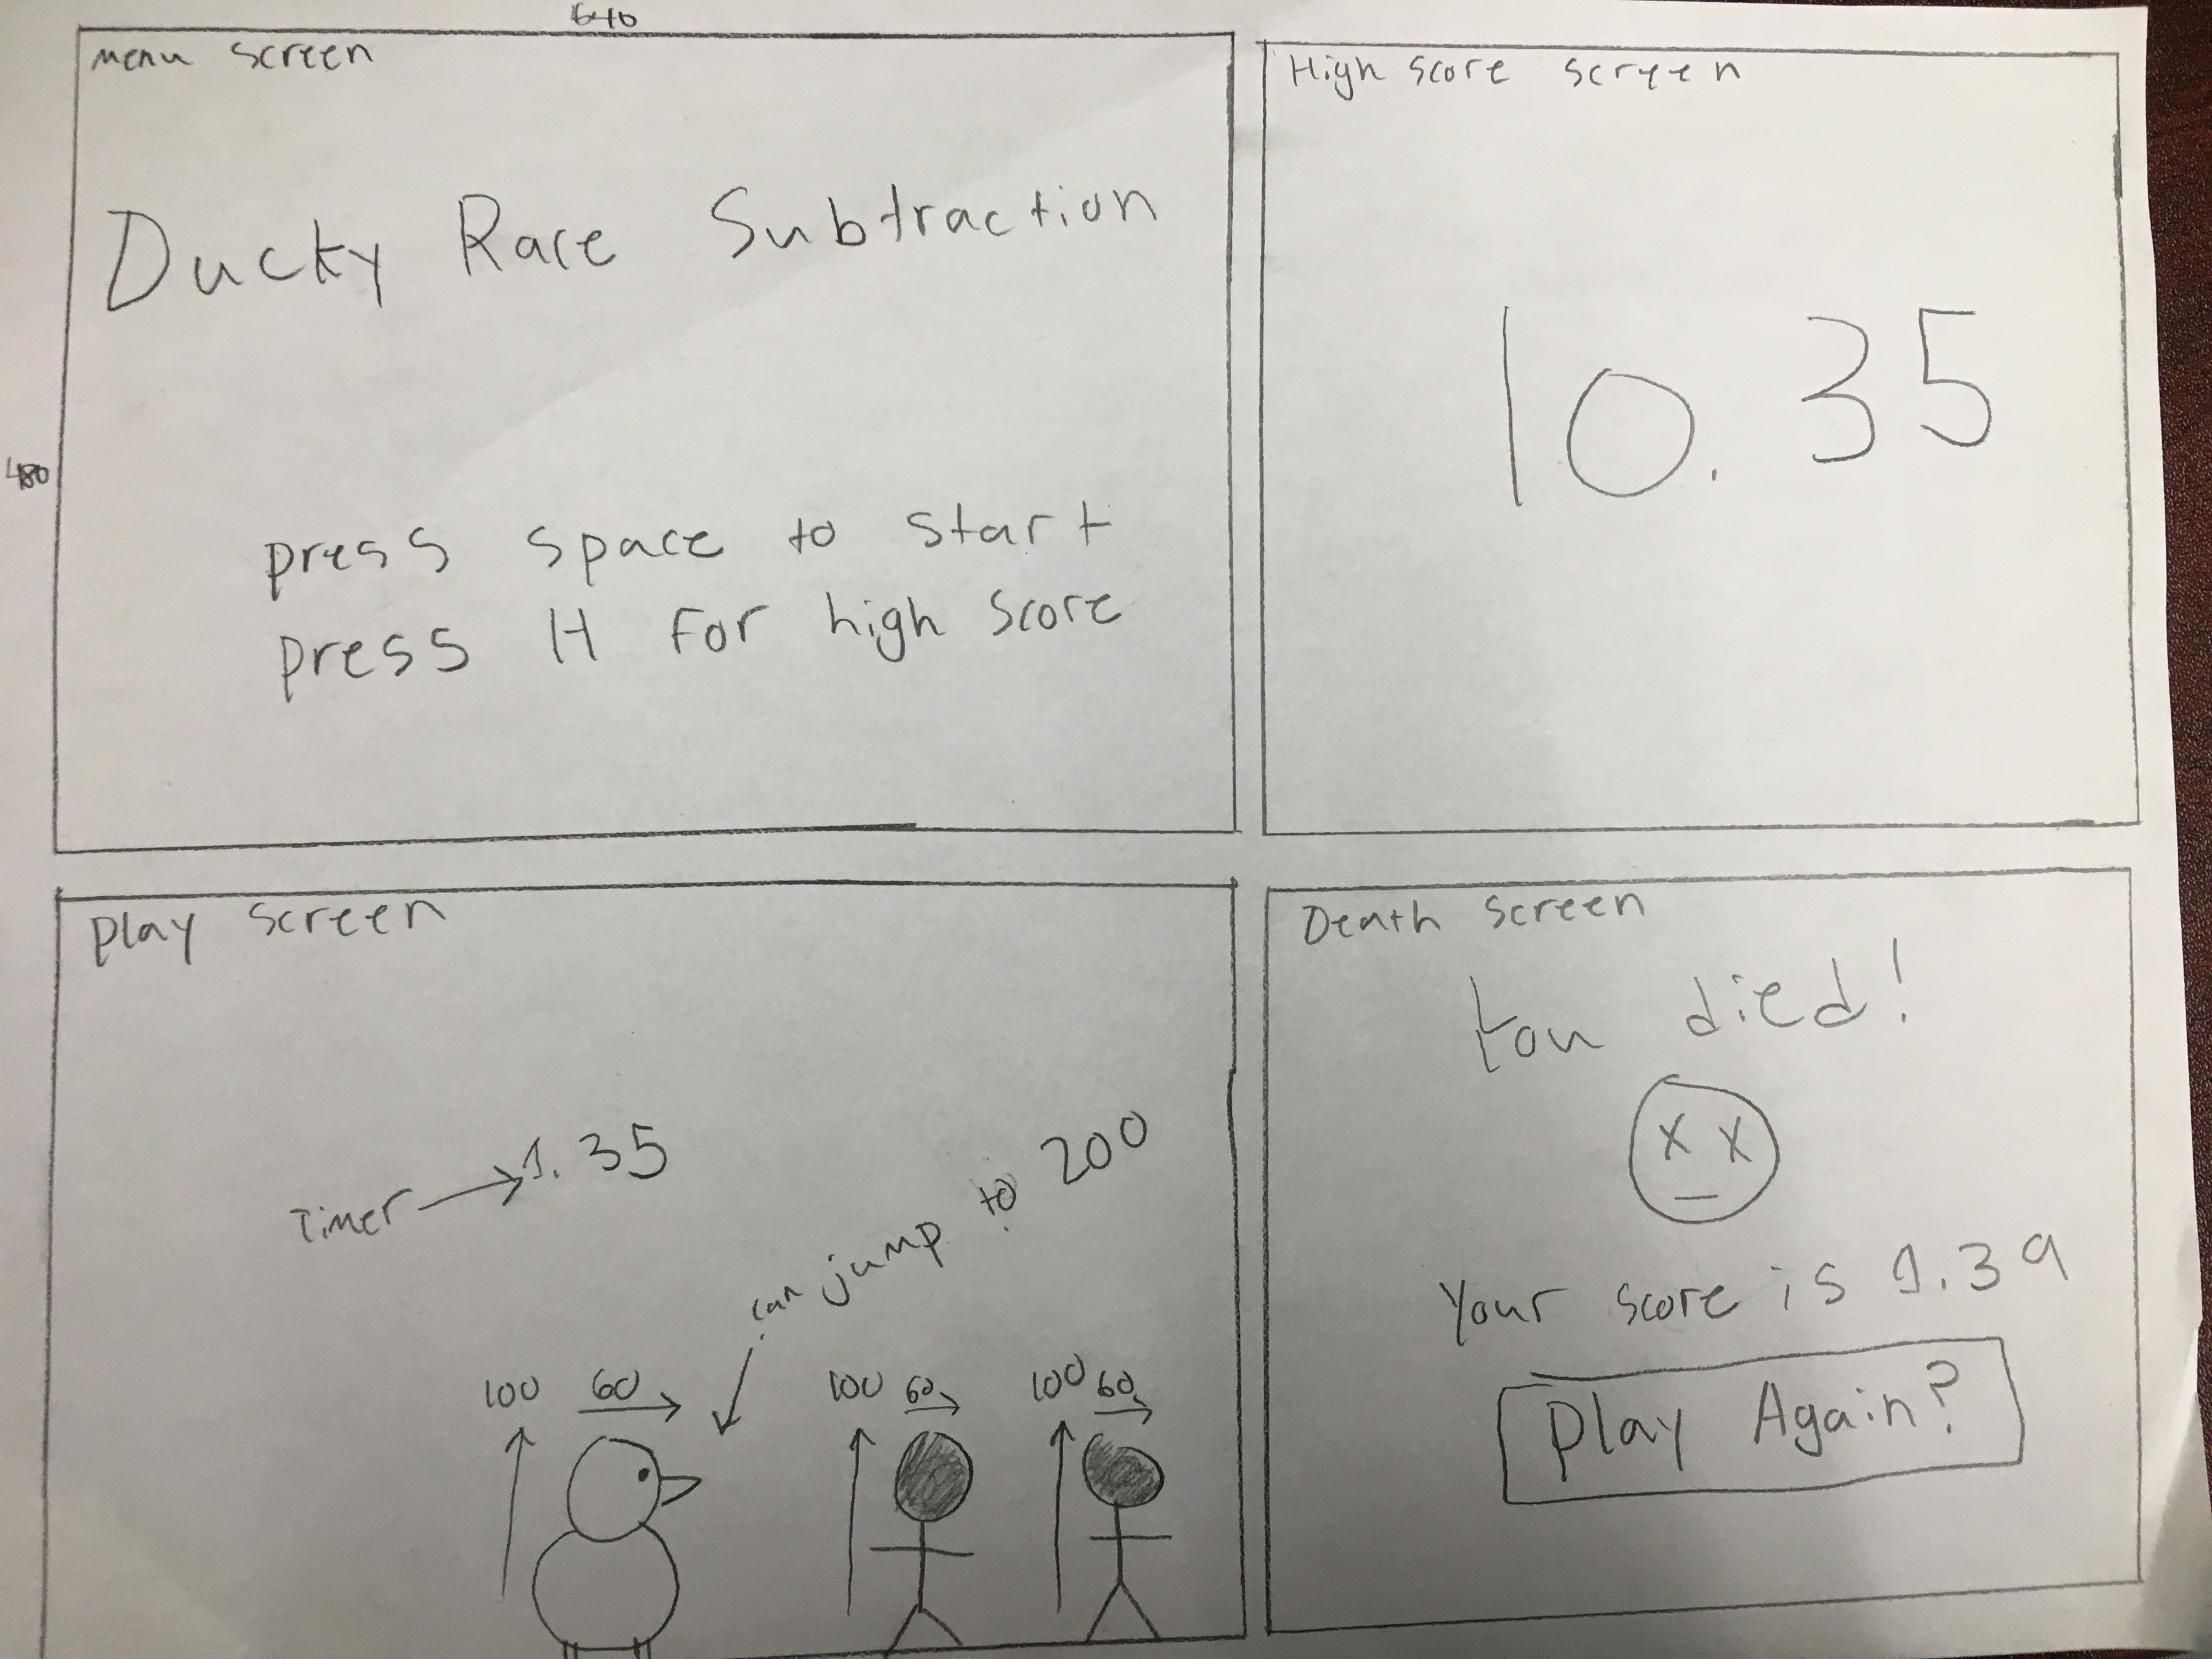 640
menu screen
Ducky Race Subtraction
480
press space to start
press H for high score
High score screen
10.35
Play screen
Timer → 1.35
can jump to 200
100 60 →
100 60 →
100 60 →
Death screen
You died!
x x
Your score is 1.39
Play Again?